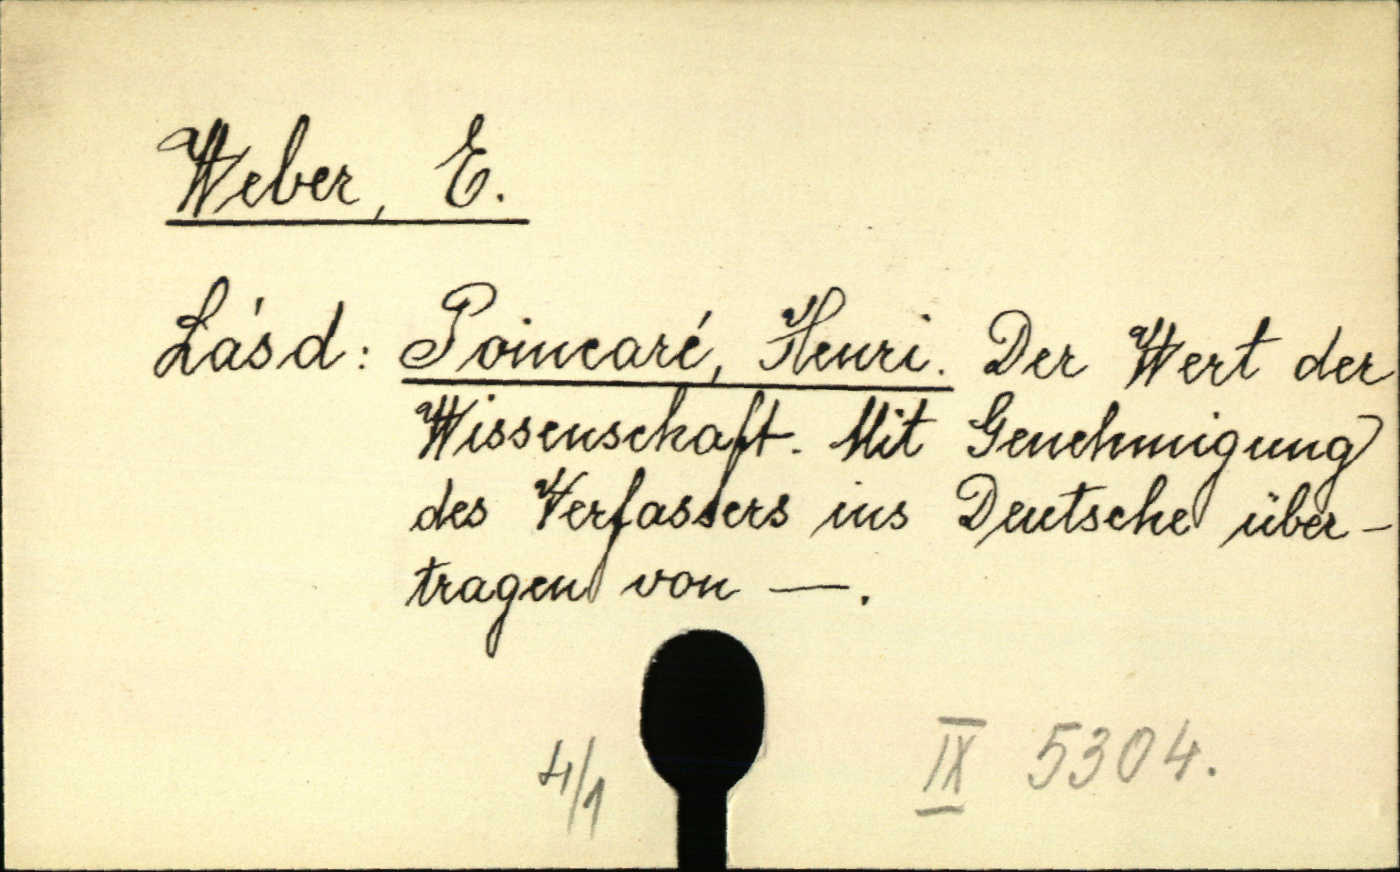 Weber, E.
Lásd: Poincaré, Henri. Der Wert der
Wissenschaft. Mit Genehmigung
des Verfassers ins Deutsche über-
tragen von —.
4/1
IX 5304.